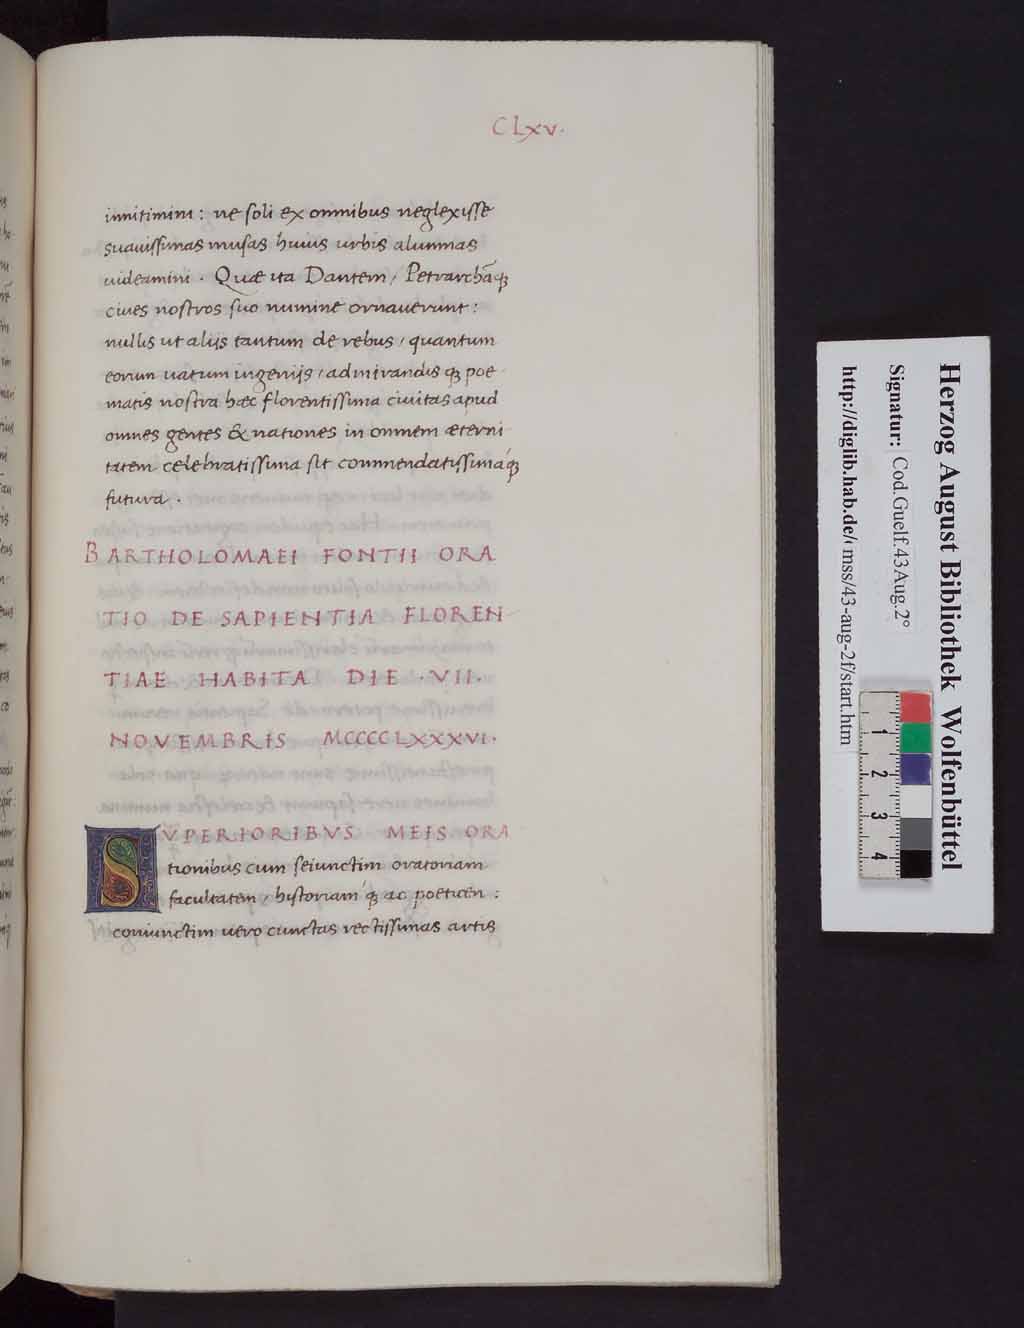 CLxv.
innitimini : ne soli ex omnibus neglexisse
suauissimas musas huius urbis alumnas
uideamini . Quæ ita Dantem / Petrarchāq;
ciues nostros suo numine ornauerunt :
nullis ut alijs tantum de rebus / quantum
eorum uatum ingenijs / admirandisq; poe
matis nostra hæc florentissima ciuitas apud
omnes gentes & nationes in omnem æterni
tatem celebratissima sit commendatissimáq;
futura .
BARTHOLOMAEI FONTII ORA
TIO DE SAPIENTIA FLOREN
TIAE HABITA DIE .VII.
NOVEMBRIS MCCCCLXXXVI.
SVPERIORIBVS MEIS ORA
tionibus cum seiunctim oratoriam
facultatem / historiamq́; ac poeticen :
coniunctim uero cunctas rectissimas artis
Herzog August Bibliothek Wolfenbüttel
Signatur: Cod.Guelf.43 Aug.2°
http://diglib.hab.de/ mss/43-aug-2f/start.htm
1 2 3 4